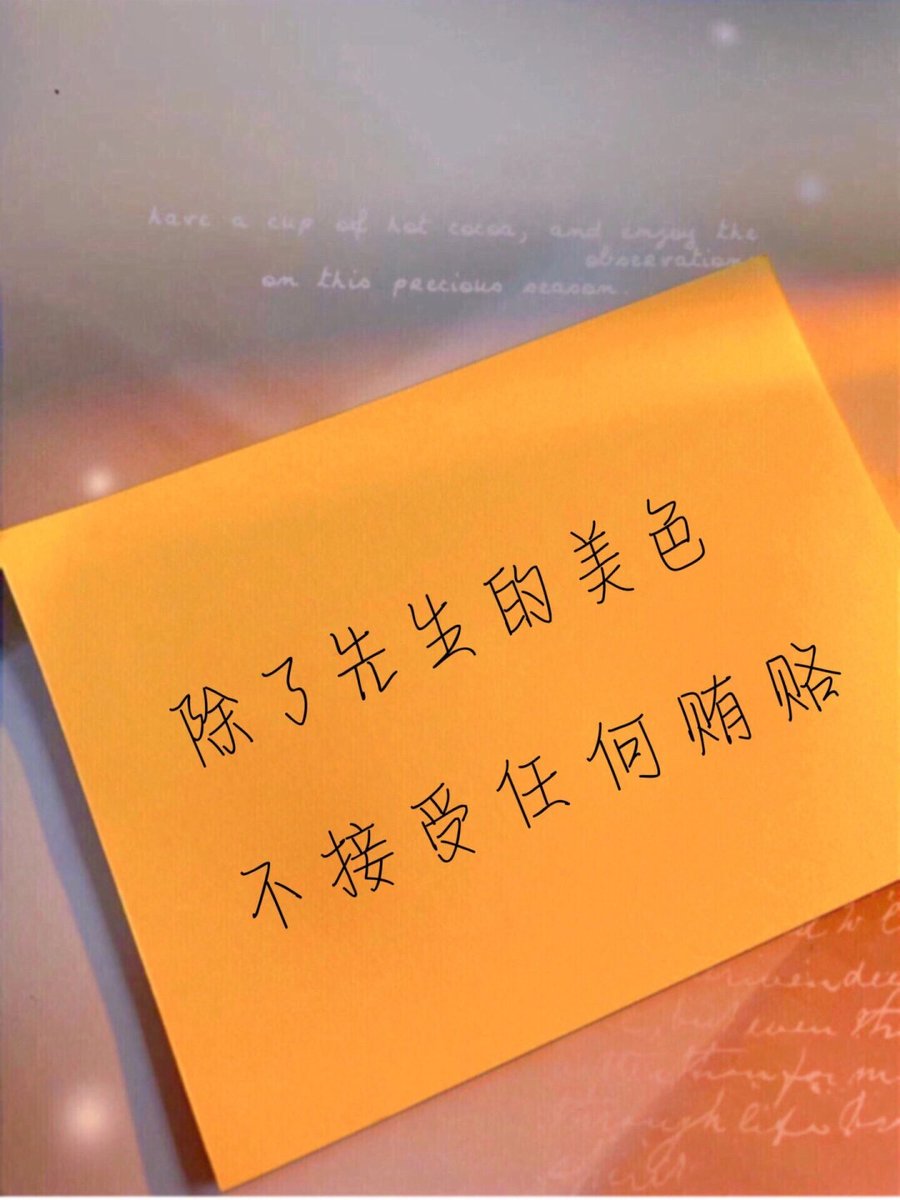 have a cup of hot cocoa, and enjoy the
observation
on this precious season.
除了先生的美色
不接受任何贿赂
even th
for m
through life